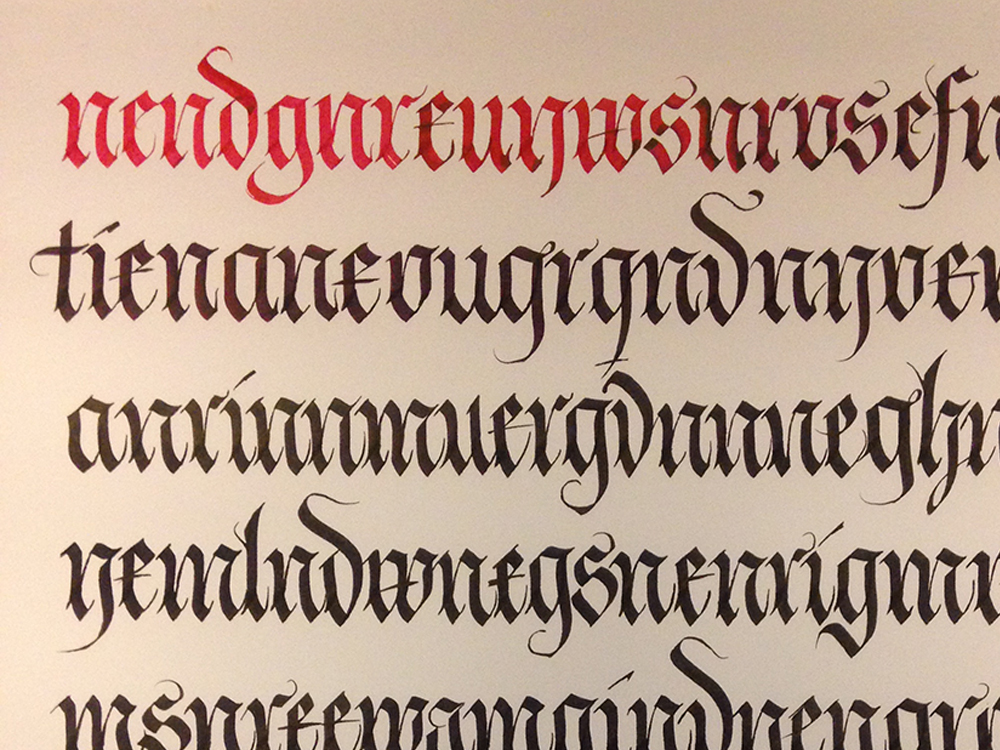 nendgnreuywsnrvsefn
tienaneougrgndnyvev
anrinnmuergdnnneghr
yemlndwnegsnenrigmr
msnreewamgindnengrr